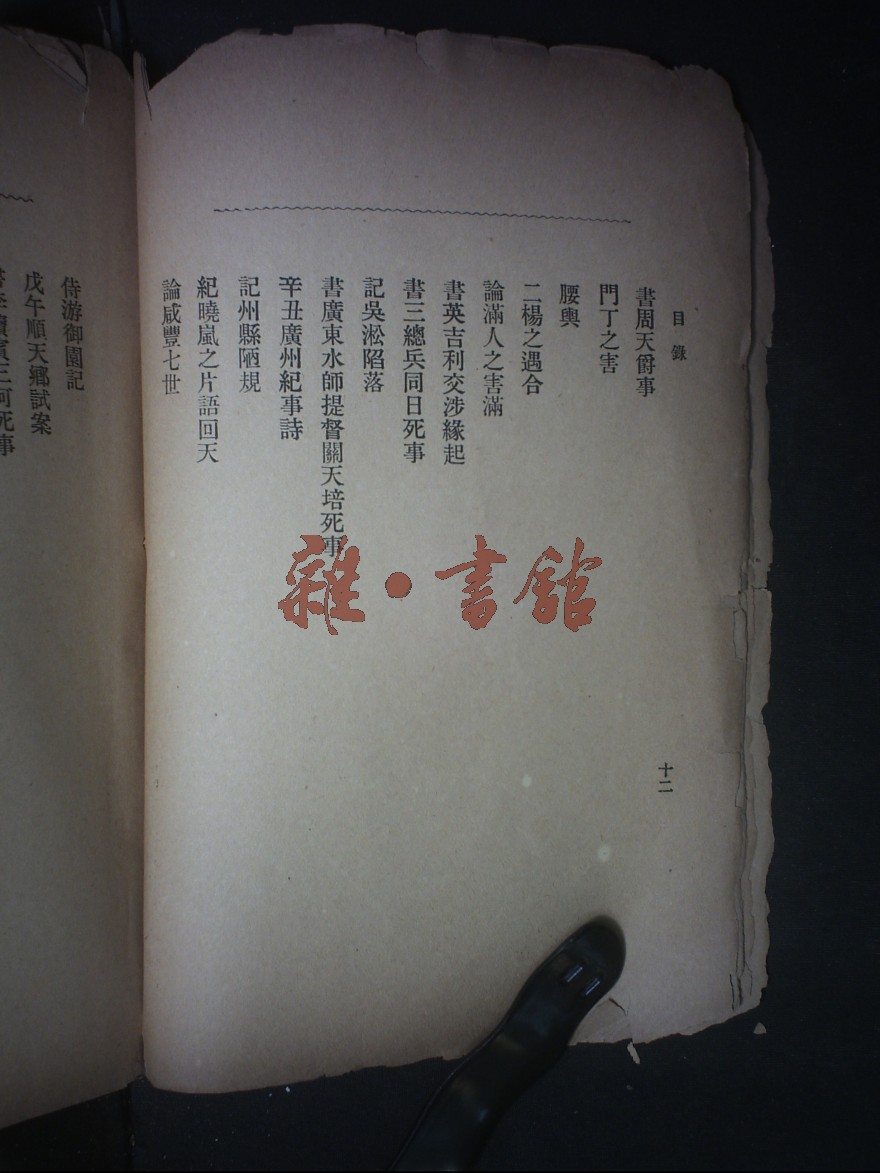 目錄
書周天爵事
門丁之害
腰輿
二楊之遇合
論滿人之害滿
書英吉利交涉緣起
書三總兵同日死事
記吳淞陷落
書廣東水師提督關天培死事
辛丑廣州紀事詩
記州縣陋規
紀曉嵐之片語回天
論咸豐七世
十二
侍游御園記
戊午順天鄉試案
雜·書館